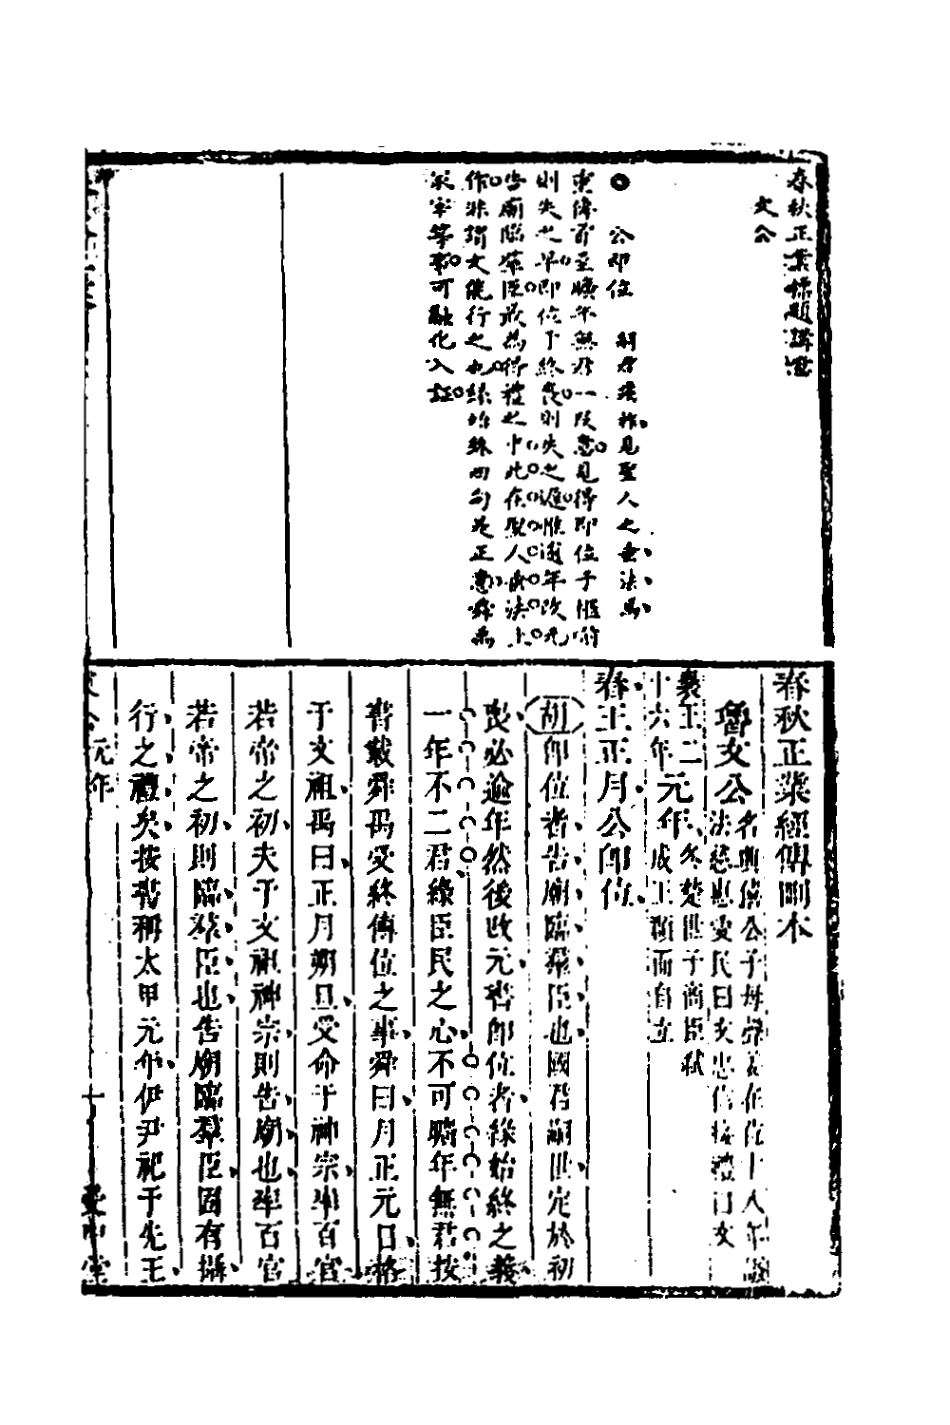 春秋正業標題講意
文公
公即位　嗣君踐祚見聖人之垂法焉
東傳首至曠年無君一段意見得即位于柩前
則失之早即位于終喪則失之遲惟逾年改元
告廟臨羣臣最為得禮之中此在聖人為法上
作非謂文能行之也緣始終四句是正意舜禹
家宰等事可融化入註
春秋正業經傳刪本
魯文公
名興僖公子母聲姜在位十八年謚
法慈惠愛民曰文忠信接禮曰文
襄王二十六年元年
冬楚世子商臣弒
成王頵而自立
春王正月公即位
胡即位者告廟臨羣臣也國君嗣世定於初
喪必逾年然後改元書即位者緣始終之義
一年不二君緣臣民之心不可曠年無君按
書載舜禹受終傳位之事舜曰月正元日格
于文祖禹曰正月朔旦受命于神宗率百官
若帝之初夫于文祖神宗則告廟也率百官
若帝之初則臨羣臣也告廟臨羣臣固有攝
行之禮矣按書稱太甲元年伊尹祀于先王
文公元年